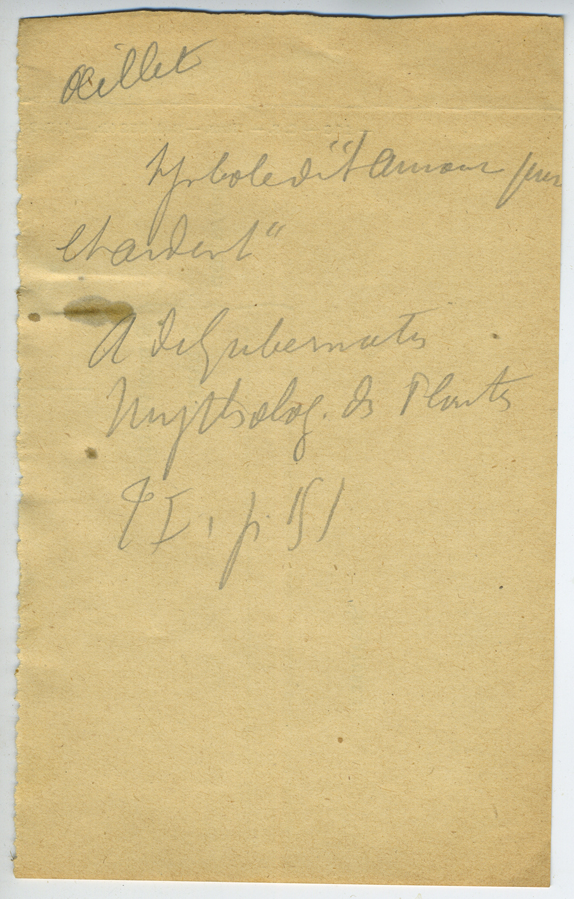 Œillet
Symbole de "l'amour pur
et ardent"
A de Gubernatis
Mytholog. des Plantes
T I, p. 151